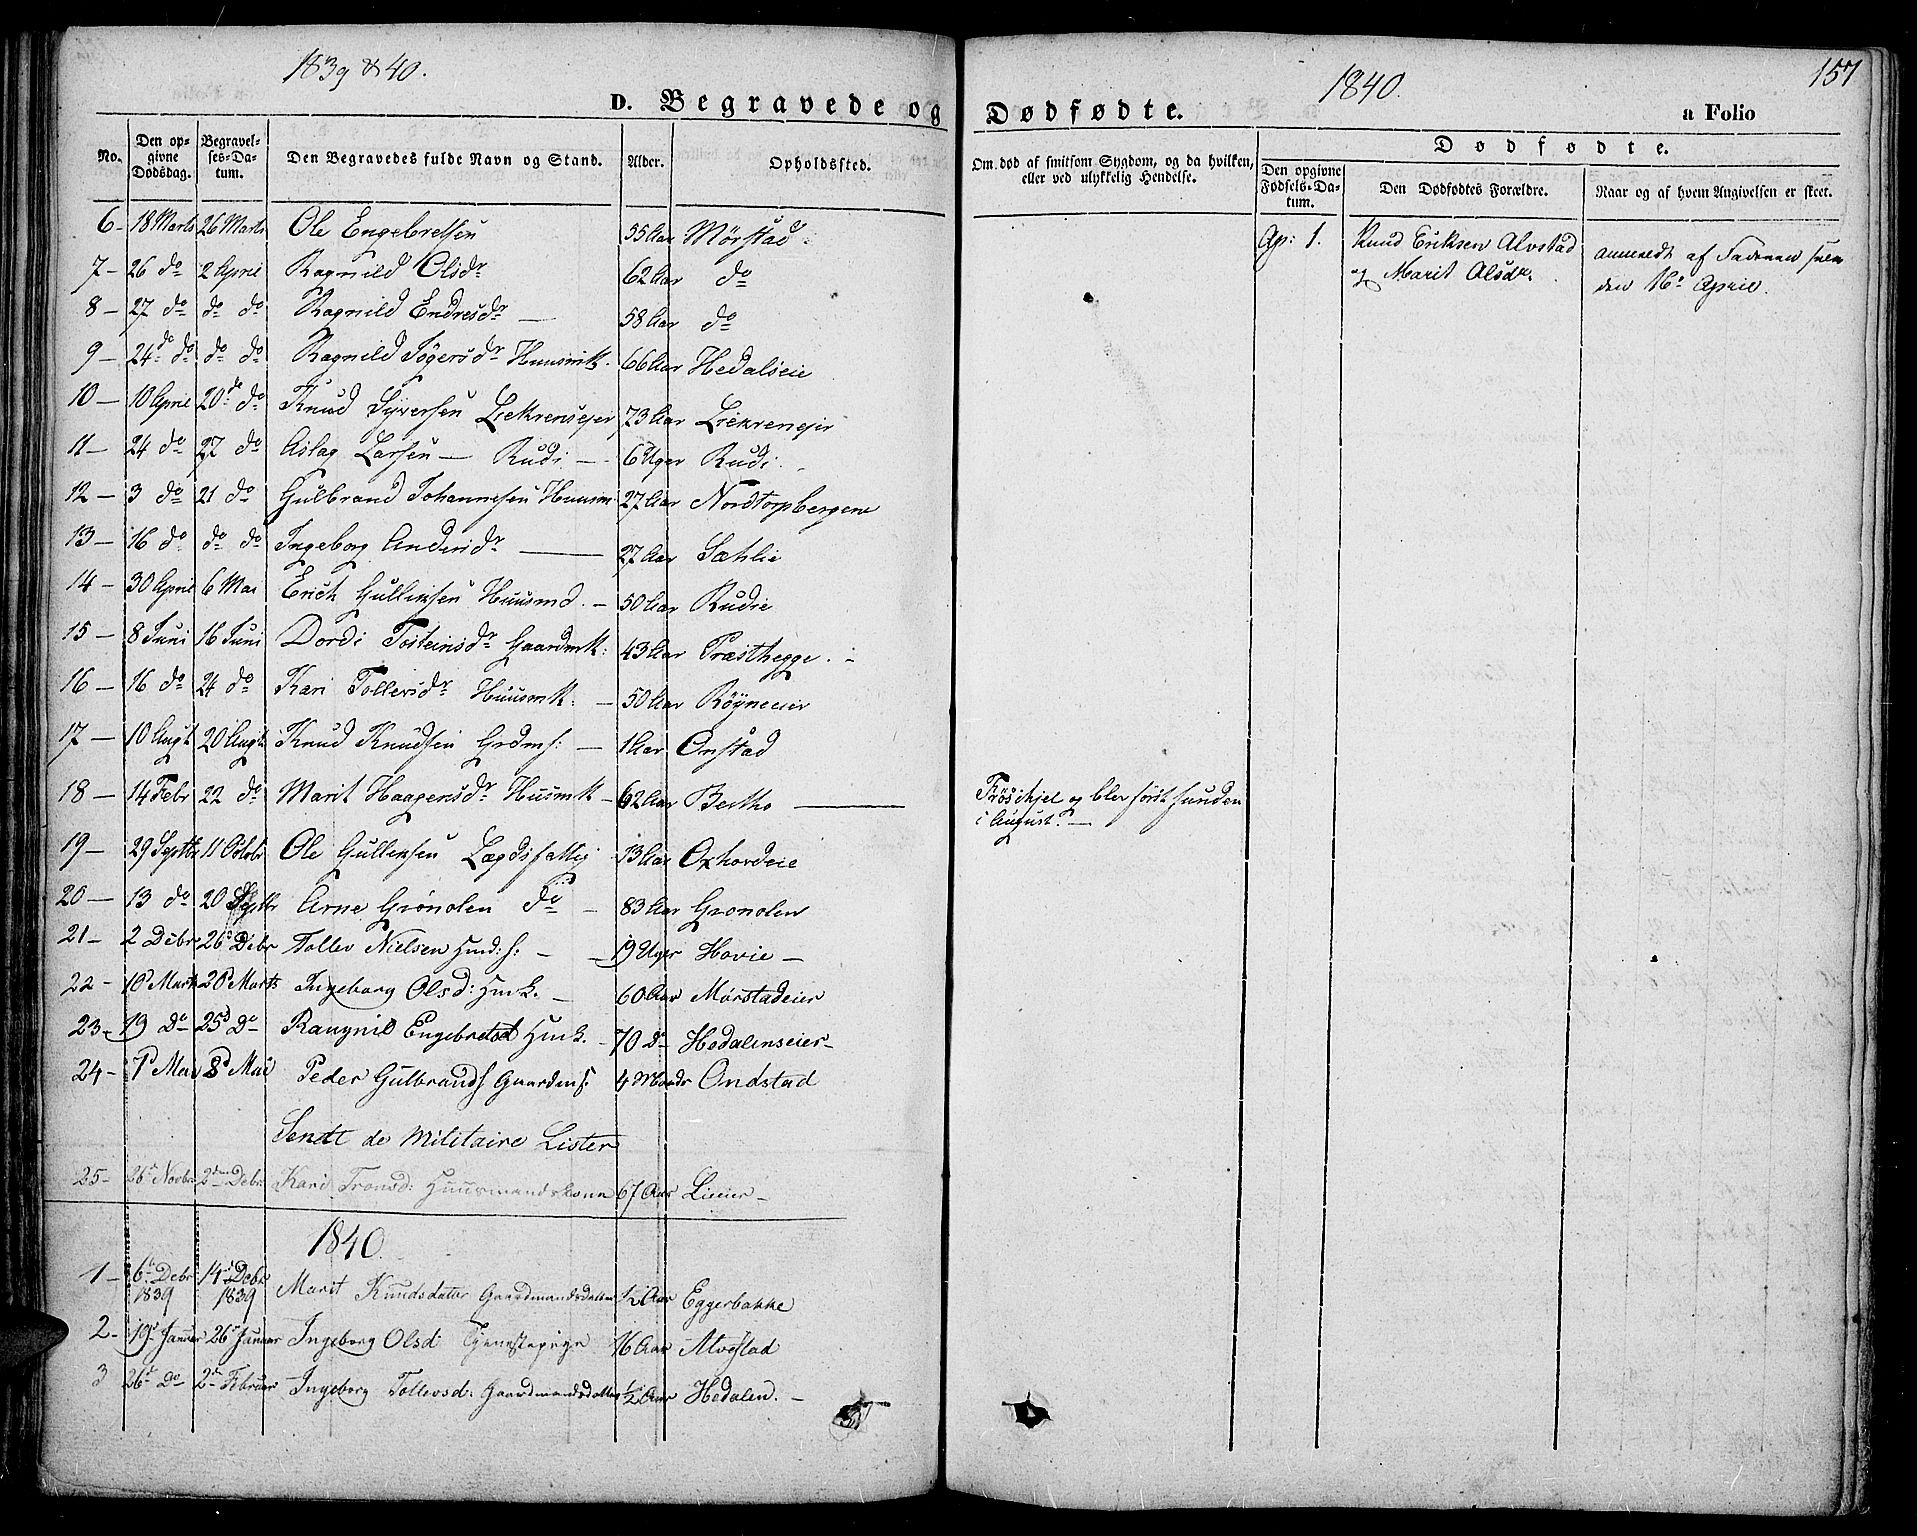 1839 & 40.
D. Begravede og
No.
Den op-
givne
Dødsdag.
Begravel-
ses-Da-
tum.
Den Begravedes fulde Navn og Stand.
Alder.
Opholdssted.
6 - 18 Marts 26 Marts Ole Engebretsen 55 Aar Mørstad
7 - 26 do 2 April Ragnild Olsdr 62 Aar do
8 - 27 do do do Ragnild Endresdr - 58 Aar do
9 - 24 do do do Ragnild Huusmk. 66 Aar Hedalseie
10 - 10 April 20 do Knud Syversen 73 Aar
11 - 24 do 27 do Aslag Larsen - Rudi - 6 Uger Rudi
12 - 3 do 21 do Gulbrand Johannesen Huusm. 27 Aar Nordtorpbergene
13 - 16 do do do Ingeborg Andersdr - 27 Aar Sæhlie
14 - 30 April 6 Mai Erich Gulliksen Huusmd. - 50 Aar Rudie
15 - 8 Juni 16 Juni Dordi Tosteinsdr Gaardmk: 43 Aar Præsthegge. -
16 - 16 do 24 do Kari Tollevsdr Huusmk: - 50 Aar Røyneeier
17 - 10 Augt 20 Augt Knud Knudsen Grdms: - 1 Aar Onstad
18 - 14 Febr 22 do Marit Haagensdr Husmk - 62 Aar Bertho
19 - 29 Septbr 11 Octobr Ole Gulliksen Lægdsfattig 13 Aar Oxhovdeie
20 - 13 do 20 Septbr Arne Grønolen do - 83 Aar Gronolen
21 - 2 Debr 26 Debr Tollev Nielsen Hmd: s: - 19 Uger Hovie -
22 - 10 Marts 20 Marts Ingeborg Olsd: Hmk. - 60 Aar Mørstadeier
23 - 19 Do 25d Do Raugnil Engebretsd Hmk. - 70 Do Hedalenseier -
24 - 1d Mai 8d Mai Peder Gulbrands Gaardms: 4 Maadr Ondstad
Sendt de Militaire Lister
25 - 26d Novbr 2den Debr Kari Tronsd: Huusmandskone 67 Aar Lieier -
1840.
1 - 6d Debr 1839 14d Debr 1839 Marit Knudsdatter Gaardmandsdatter 1/2 Aar Eggerbakke
2 - 19d Januar 26d Januar Ingeborg Olsd: Tjenestepige 16 Aar Alvstad
3 26d Do 2d Februar Ingeborg Tollevsd: Gaardmandsdatter 1/2 Aar Hedalen. -
1840.
157
Dødfødte.
a Folio
Om død af smitsom Sygdom, og da hvilken,
eller ved ulykkelig Hendelse.
Dødfødte.
Den opgivne
Fødsels-Da-
tum.
Den Dødfødtes Forældre.
Naar og af hvem Angivelsen er skeet.
Ap: 1. Knud Eriksen Alvstad
og Marit Alsdr.
anmeldt af Faderen
den 16d April.
Frøs ihjel og blev først funden
i August. -